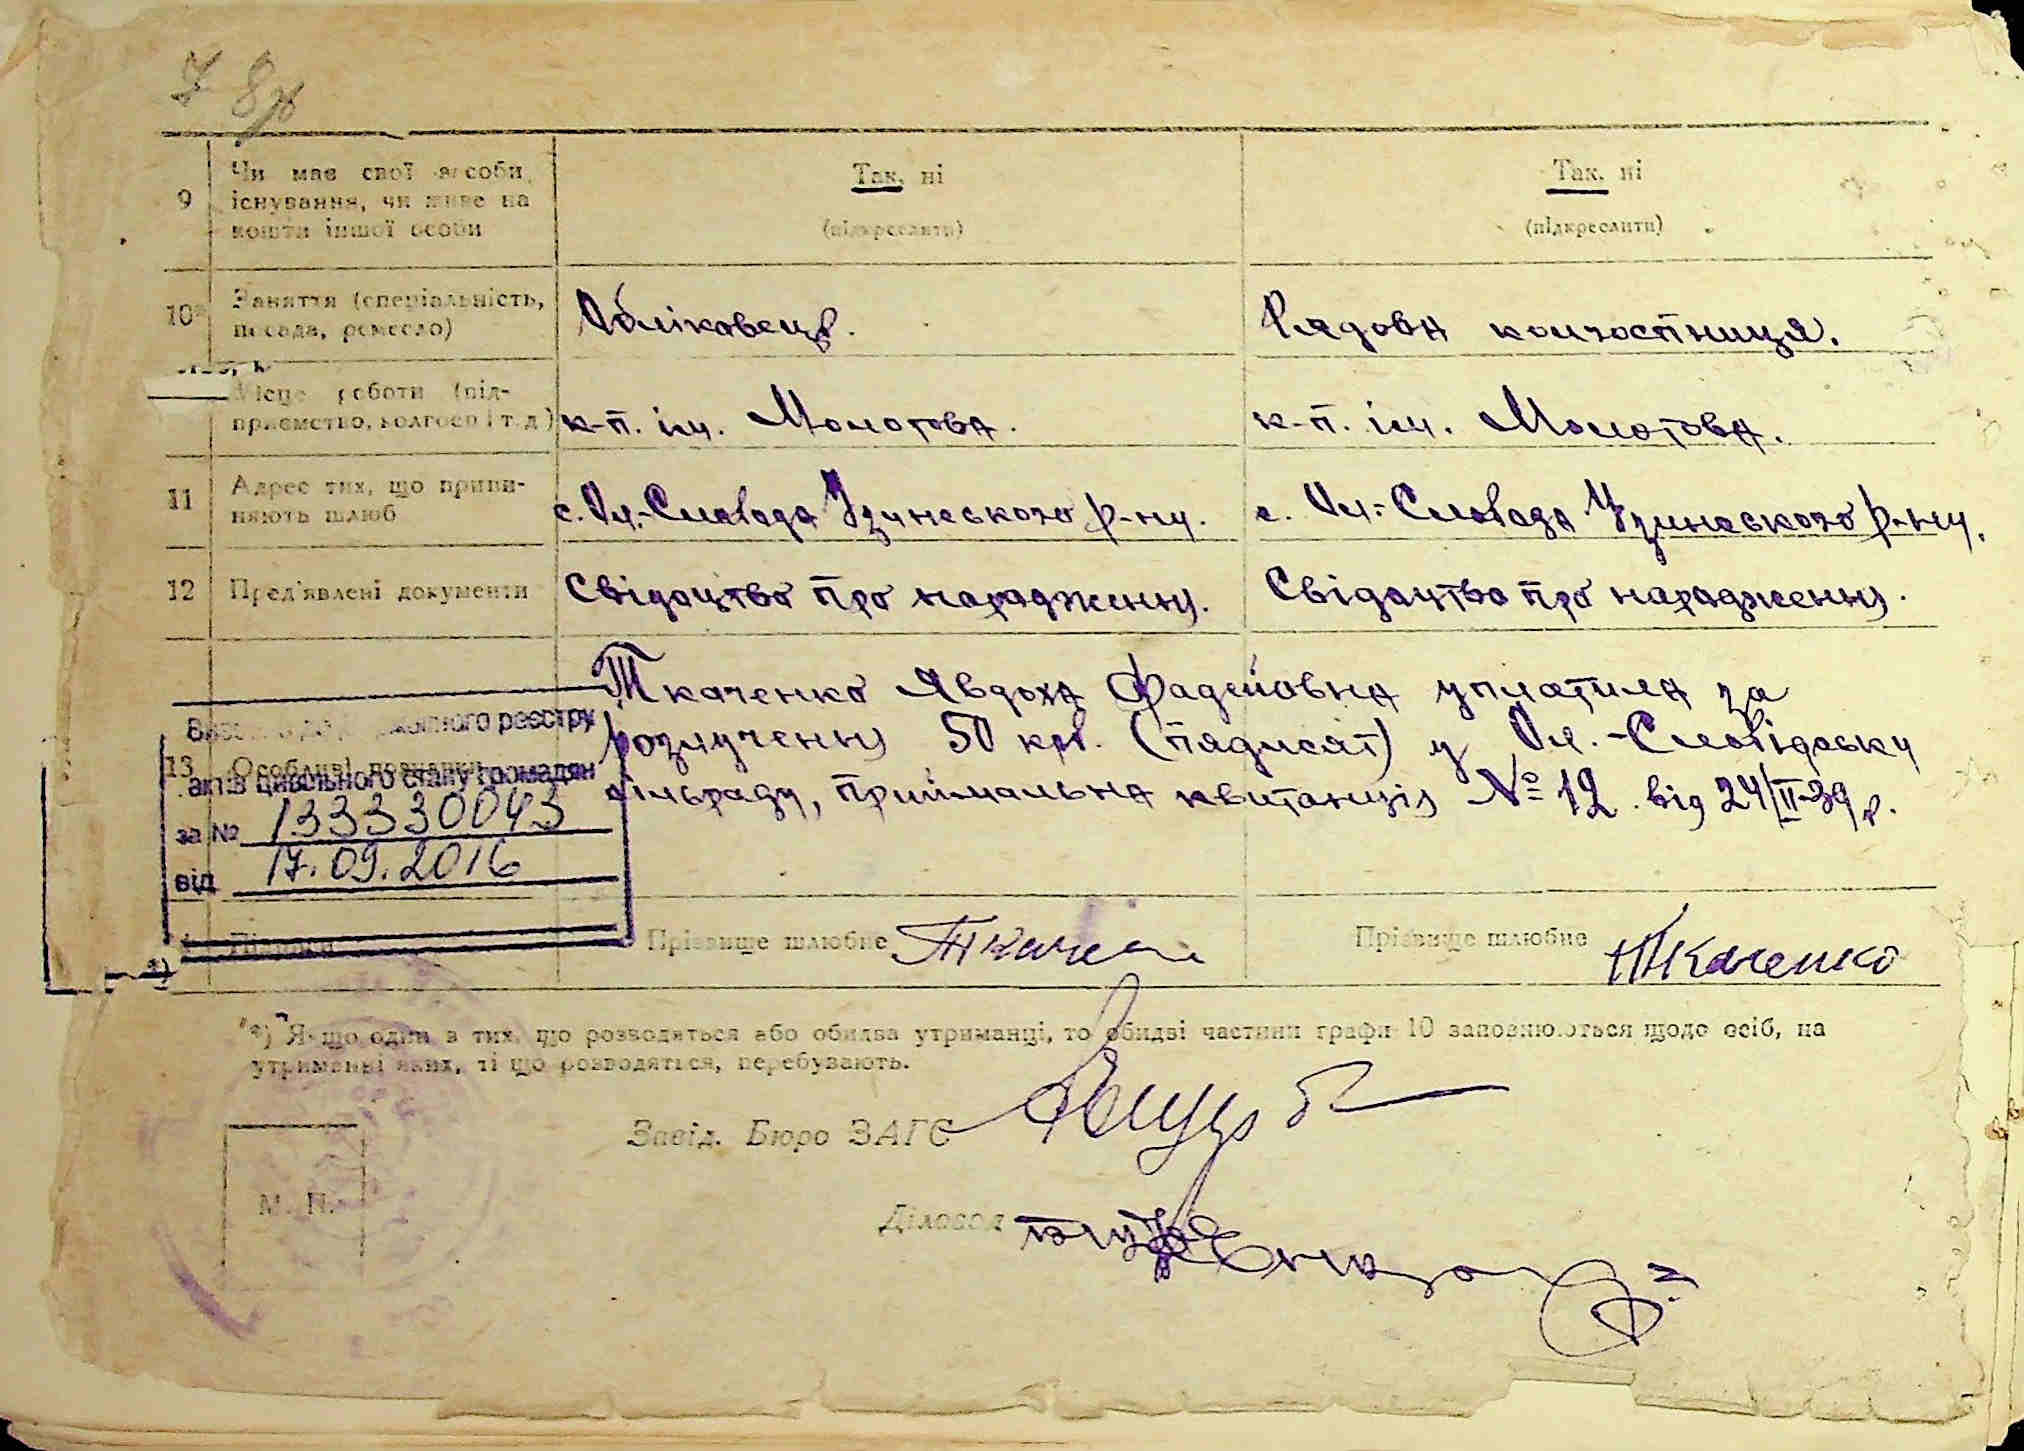 7 8
9 Чи має свої засоби існування, чи живе на кошти іншої особи
Так, ні
(підкреслити)
Так, ні
(підкреслити)
10* Заняття (спеціальність, посада, ремесло)
Обліковець.
Рядова колгоспниця.
Місце роботи (підприємство, колгосп і т. д.)
к-п. ім. Молотова.
к-п. ім. Молотова.
11 Адрес тих, що припиняють шлюб
с. Ол.-Слобода Узинського р-ну.
с. Ол.-Слобода Узинського р-ну.
12 Пред'явлені документи
Свідоцтво про народженну.
Свідоцтво про народженну.
13 Особливі
Ткаченко Явдоха Фадейовна уплатила за
розлученну 50 крб. (пядисят) у Ол.-Слобідську
сільраду, приймальна квитанція № 12 від 24/II-39 р.
Внесено до Державного реєстру
актів цивільного стану громадян
за № 133330043
від 17.09.2016
Підписи
Прізвище шлюбне Ткачен
Прізвище шлюбне Ткаченко
*) Якщо один з тих, що розводяться або обидва утриманці, то обидві частини графи 10 заповнюються щодо осіб, на
утриманні яких, ті що розводяться, перебувають.
Завід. Бюро ЗАГС
М. П.
Діловод